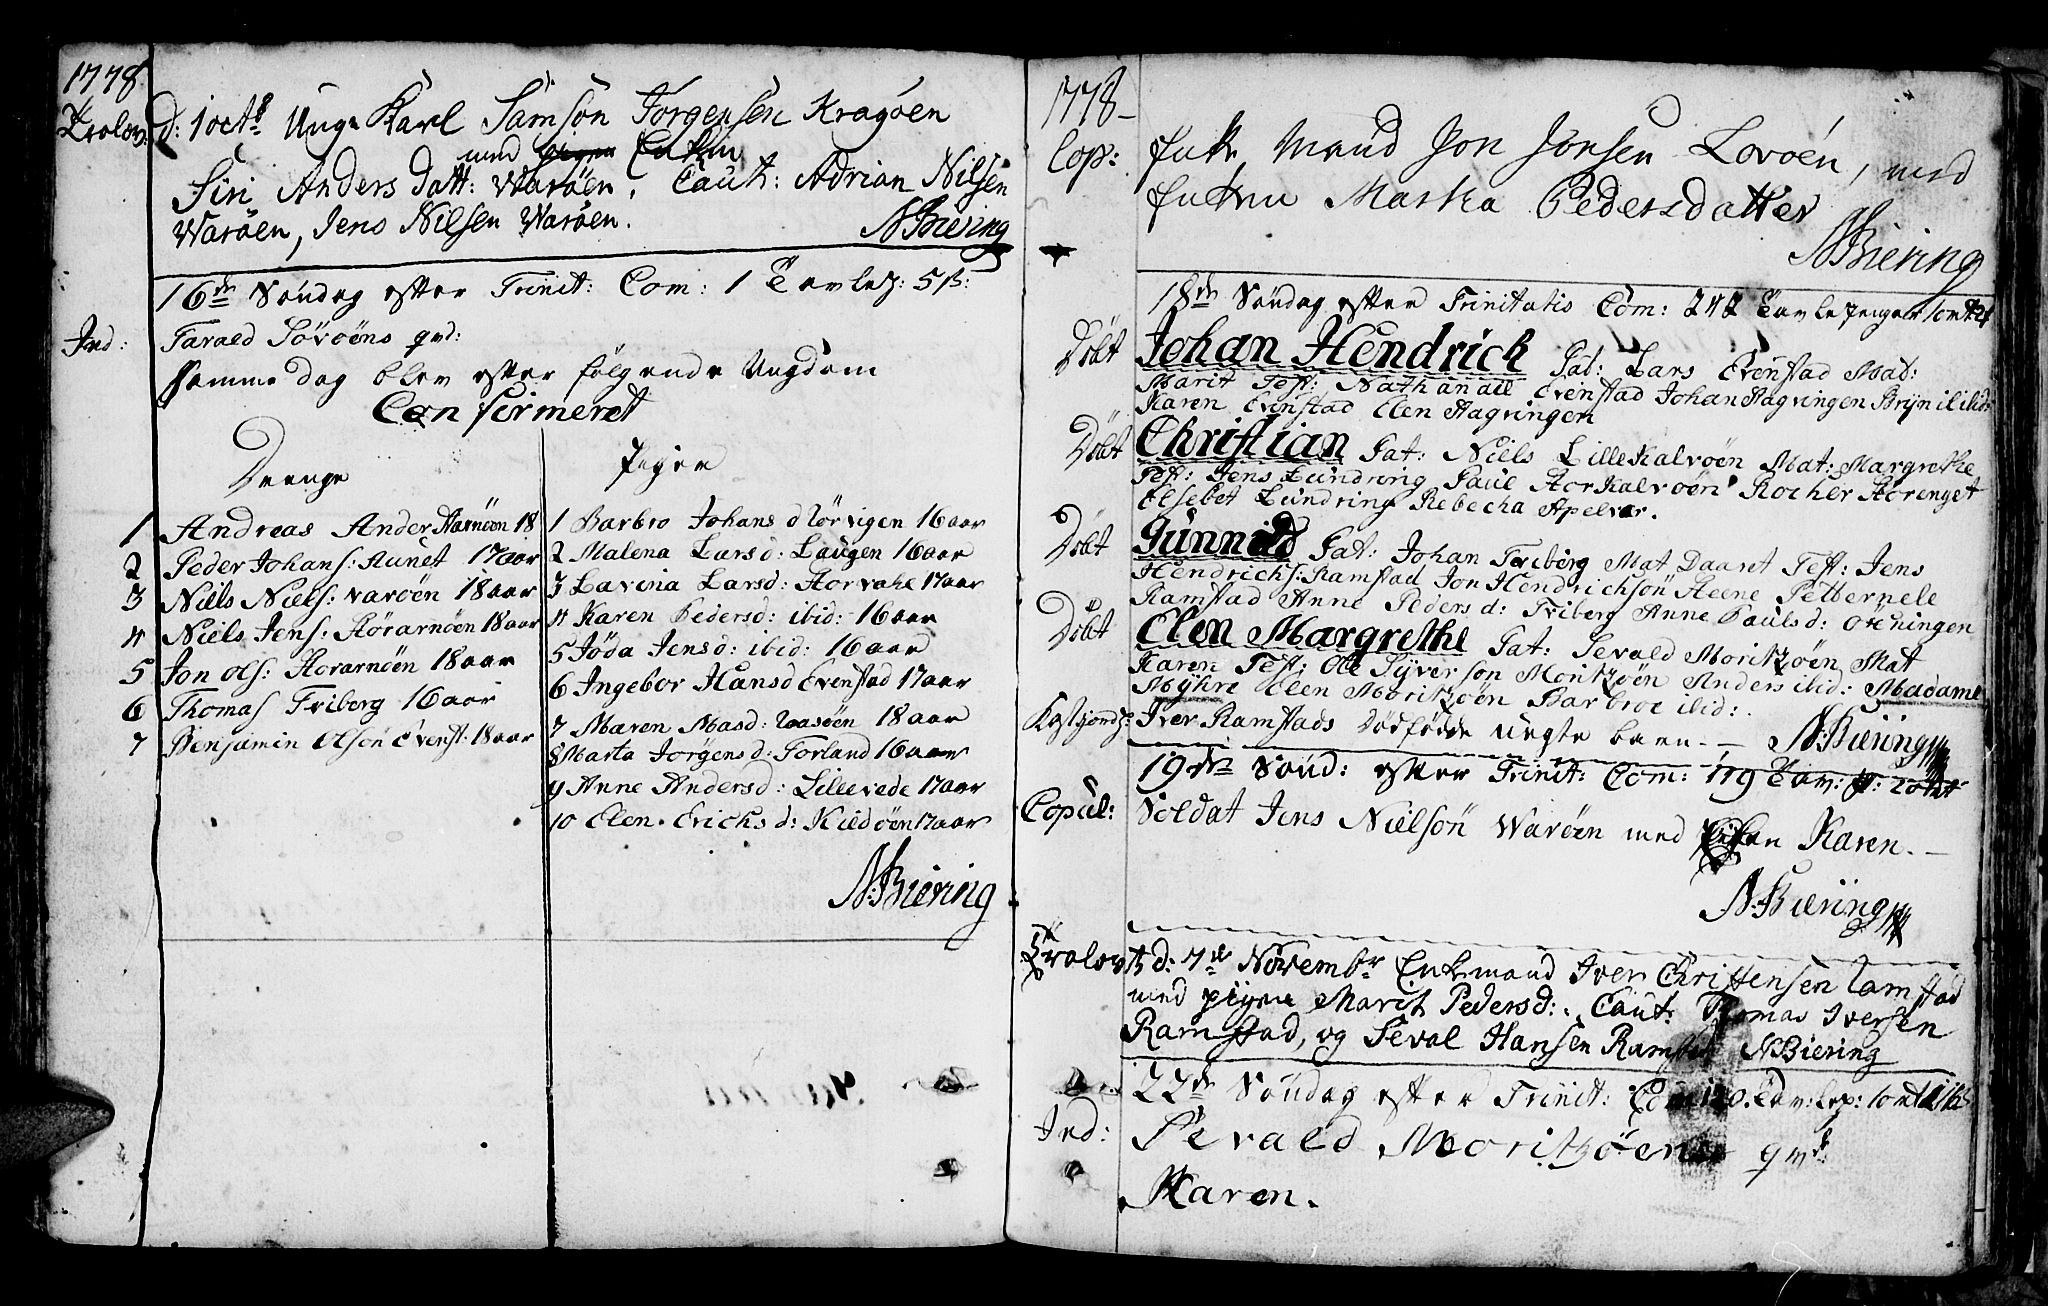 1778
Trolov: d: 1 octb: Unge Karl Samson Jörgensen Kragöen
med Enken
Siri Anders datt: Waröen, Caut: Adrian Nilsen
Waröen, Jens Nilsen Waröen.
N Biering
16de Söndag efter Trinit: Com: 1 Tavlep: 5 ß:
Ind: Tarald Sövöens qvd:
Samme dag blev efter følgende Ungdom
Confirmeret
Drenge
1 Andreas Anders Harnöen 18
2 Peder Johans: Aunet 17 aar
3 Niels Niels: Varöen 18 aar
4 Niels Jens: Horarnöen 18 aar
5 Jon Ols: Horarnöen 18 aar
6 Thomas Friberg 16 aar
7 Benjamin Olsön Evenst: 18 aar
Piger
1 Barbro Johans d Hörvigen 16 aar
2 Malena Larsd: Laugen 16 aar
3 Lavina Larsd: Horvahe 17 aar
4 Karen Pedersd: ibid: 16 aar
5 Jöda Jensd: ibid: 16 aar
6 Ingebor Hansd Evenstad 17 aar
7 Maren Masd: 18 aar
8 Marta Jörgensd: Forland 16 aar
9 Anne Andersd: Lillevade 17 aar
10 Elen Erichsd: Kildöen 17 aar
N: Biering
1778
Cop: Enke Mand Jon Jonsen Lovöen, med
Enken Marta Pedersdatter
N Biering
18de Söndag efter Trinitatis Com: 242 Tavlepenger 1 ort 21
Döbt Johan Hendrich Fat: Lars Evenstad Mat:
Marit Test: Nathanael Evenstad Johan Hagringen Brÿnil ibid:
Karen Evenstad Elen Hagringen
Döbt Christian Fat: Niels Lille Kalvöen Mat: Margrethe
Test: Jens Lundring Paul Hor Kalvöen Rocher Horenget
Elsebet Lundring Rebecha Apelvær.
Döbt Gunnild Fat: Johan Friberg Mat Daaret Test: Jens
Hendrichs: Ramstad Jon Hendrichsön Heene Petternele
Ramstad Anne Peders d: Friberg Anne Paulsd: Öeningen
Döbt Elen Margrethe Fat: Sevald Moritzöen Mat
Karen Test: Ole Syverson Moritzöen Anders ibid: Madame
Mÿhre Elen Moritzöen Barbroe ibid:
Kastjordt: Iver Ramstads dödfödde uegte barn. – N: Biering
19de Sönd: efter Trinit: Com: 119 Tav: p: 2 ort
Copul: Soldat Jens Nielsön Waröen med Karen. –
N: Biering
Trolovt d: 7de Novembr Enkemand Iver Christensen Ramstad
med pigen Marit Pedersd: Caut: Thomas Iversen
Ramstad, og Seval Hansen Ramstad N Biering
22de Söndag efter Trinit: Com 120. Tav: lep: 1 ort
Ind: Sevald Moritzöens qvd:
Karen.